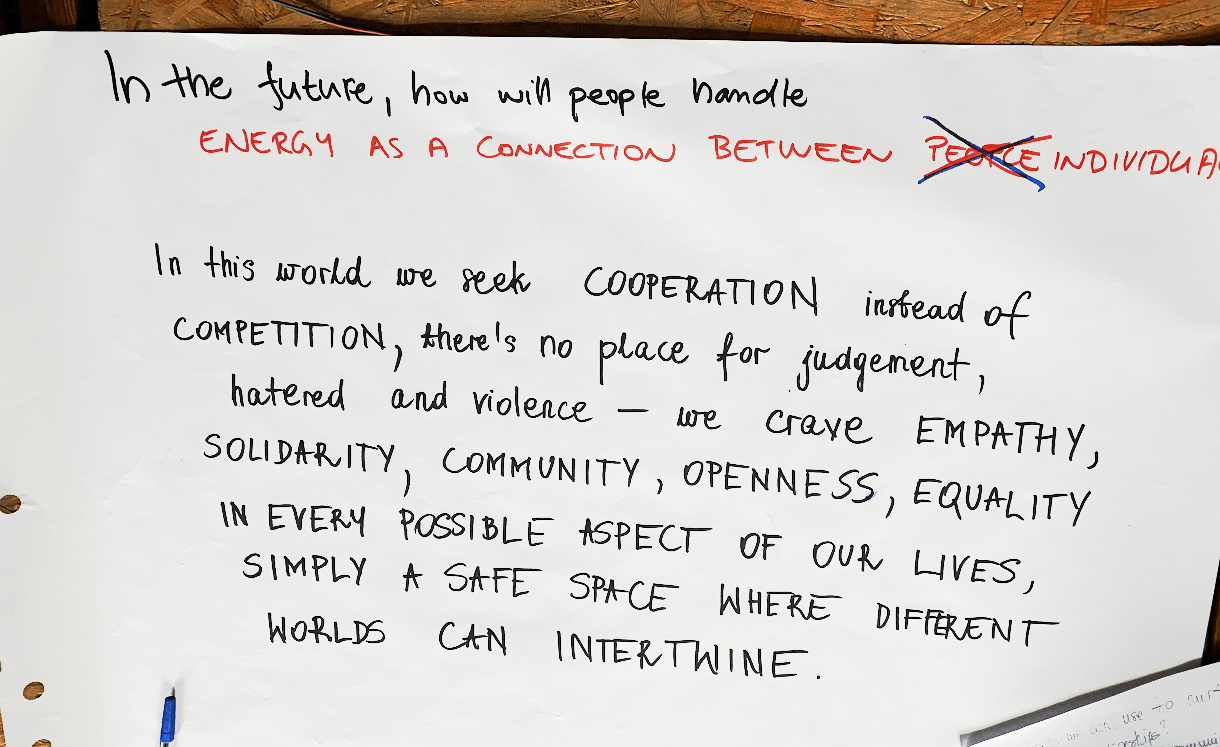 In the future, how will people handle
ENERGY AS A CONNECTION BETWEEN PEOPLE INDIVIDUA
In this world we seek COOPERATION instead of
COMPETITION, there's no place for judgement,
hatered and violence — we crave EMPATHY,
SOLIDARITY, COMMUNITY, OPENNESS, EQUALITY
IN EVERY POSSIBLE ASPECT OF OUR LIVES,
SIMPLY A SAFE SPACE WHERE DIFFERENT
WORLDS CAN INTERTWINE.
we can use to